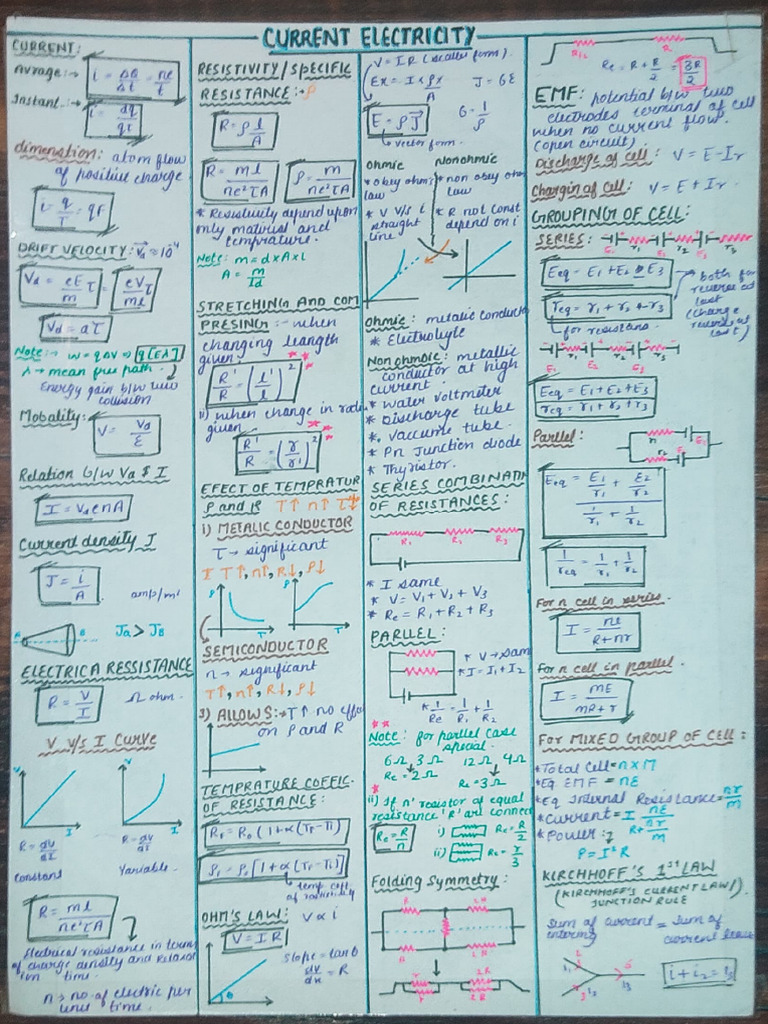 CURRENT ELECTRICITY
CURRENT:
Avrage:→ i = ΔQ/Δt = ne/t
Instant.:→ i = dq/qt
dimenstion: atom flow
of positive charge
i = q/T = qF
DRIFT VELOCITY: Vd ≈ 10⁻⁴
Vd = eE/m τ = eVτ/ml
Vd = aτ
Note:→ w = qΔV ⇒ q[Eλ]
λ → mean free path.
Energy gain b/w two
collision
Mobality: V = Vd/E
Relation b/w Vd & I
I = VdenA
Current density J
J = i/A amp/m²
A B Ja > JB
ELECTRICA RESSISTANCE
R = V/I Ω ohm.
V V/s I CURVE
V I V I
R = dV/dI R = dV/dI
Constant Variable.
R = ml/ne²τA
Electrical resistance in term
of charge density and Relaxat
ion time.
n → no. of electric per
unit time.
RESISTIVITY/SPECIFIC
RESISTANCE:→ ρ
R = ρ l/A
R = ml/ne²τA ρ = m/ne²τA
* Resistivity depend upon
only material and
temprature.
Note: m = d×A×l
A = m/ld
STRETCHING AND COM
PRESING:- when
changing leangth
given:
R'/R = (l'/l)²
ii) when change in radi
given
R'/R = (r/r')²
EFECT OF TEMPRATUR
ρ and R T↑ n↑ τ↓
i) METALIC CONDUCTOR
τ → significant
I T↑, n↑, R↓, ρ↓
ρ T ρ T
SEMICONDUCTOR
n → significant
T↑, n↑, R↓, ρ↓
3) ALLOWS:→ T↑ no effec
on ρ and R
TEMPRATURE COEFFIC-
OF RESISTANCE:
RF = R0 (1+α(TF-Ti)
ρF = ρ0 [1+α(TF-Ti]
temp coff.
of resistivity
OHM'S LAW: V ∝ i
V = IR
θ
Slope = tanθ
dV/dn = R
V = IR (scaller form).
Ex = I × ρx/A J = σE
E = ρJ σ = 1/ρ
→ vector form.
Ohmic Nonohmic
* obey ohm * non obey ohm
law law
* V V/s i * R not Const
straight depend on i
line
Ohmic: metalic conducto
* Electrolyte
Nonohmoic: metallic
conductor at high
current.
* water voltmeter
* Discharge tube
* Vaccume tube.
* Pn Junction diode
* Thyristor.
SERIES COMBINATN
OF RESISTANCES:
R1 R2 R3
* I same
* V = V1 + V2 + V3
* Re = R1 + R2 + R3
PARLLEL:
* V → sam
* I = I1 + I2
* 1/Re = 1/R1 + 1/R2
Note: for parllel case
special.
6Ω 3Ω 12Ω 4Ω
Re = 2Ω Re = 3Ω
ii) If n' resistor of equal
resistance 'R' are connect
Re = R/n i) Re = R/2
ii) Re = r/3
Folding Symmetry:
R 2R
R 2R
R 2R
R/2 R
Re = R + R/2 = 3R/2
EMF: potential b/w two
electrodes terminal of cell
when no current flow.
(open circuit)
Discharge of cell: V = E - Ir
Chargin of cell: V = E + Ir
GROUPING OF CELL:
SERIES:
E1 r1 E2 r2 E3 r3
Eeq = E1 + E2 - E3
req = r1 + r2 + r3
→ for resistans.
both for
reverse at
last
(charge
reverse at
last)
E1 r1 E2 r2 E3 r3
Eeq = E1 + E2 + E3
req = r1 + r2 + r3
Parllel: r1 E1
r2 E2
Eeq = (E1/r1 + E2/r2)/(1/r1 + 1/r2)
1/req = 1/r1 + 1/r2
For n cell in series
I = nE/R+nr
For n cell in parllel.
I = mE/mR+r
For MIXED GROUP OF CELL:
* Total Cell = n×M
* Eq EMF = nE
* eq Internal Resistance = nr/m
* Current = I = nE/(R + nr/m)
* Power:
P = I²R
KIRCHHOFF'S 1ST LAW
(KIRCHHOFF'S CURRENT LAW/
JUNCTION RULE
Sum of current = Sum of
entering current leave
i1 i2 i3
i + i2 = i3